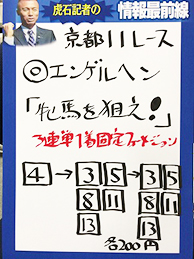 虎石記者の
情報最前線
京都11レース
◎エンゲルヘン
「牝馬を狙え!」
3連単1着固定フォーメーション
4→3 5→3 5
8 11 8 11
13 13
各200円